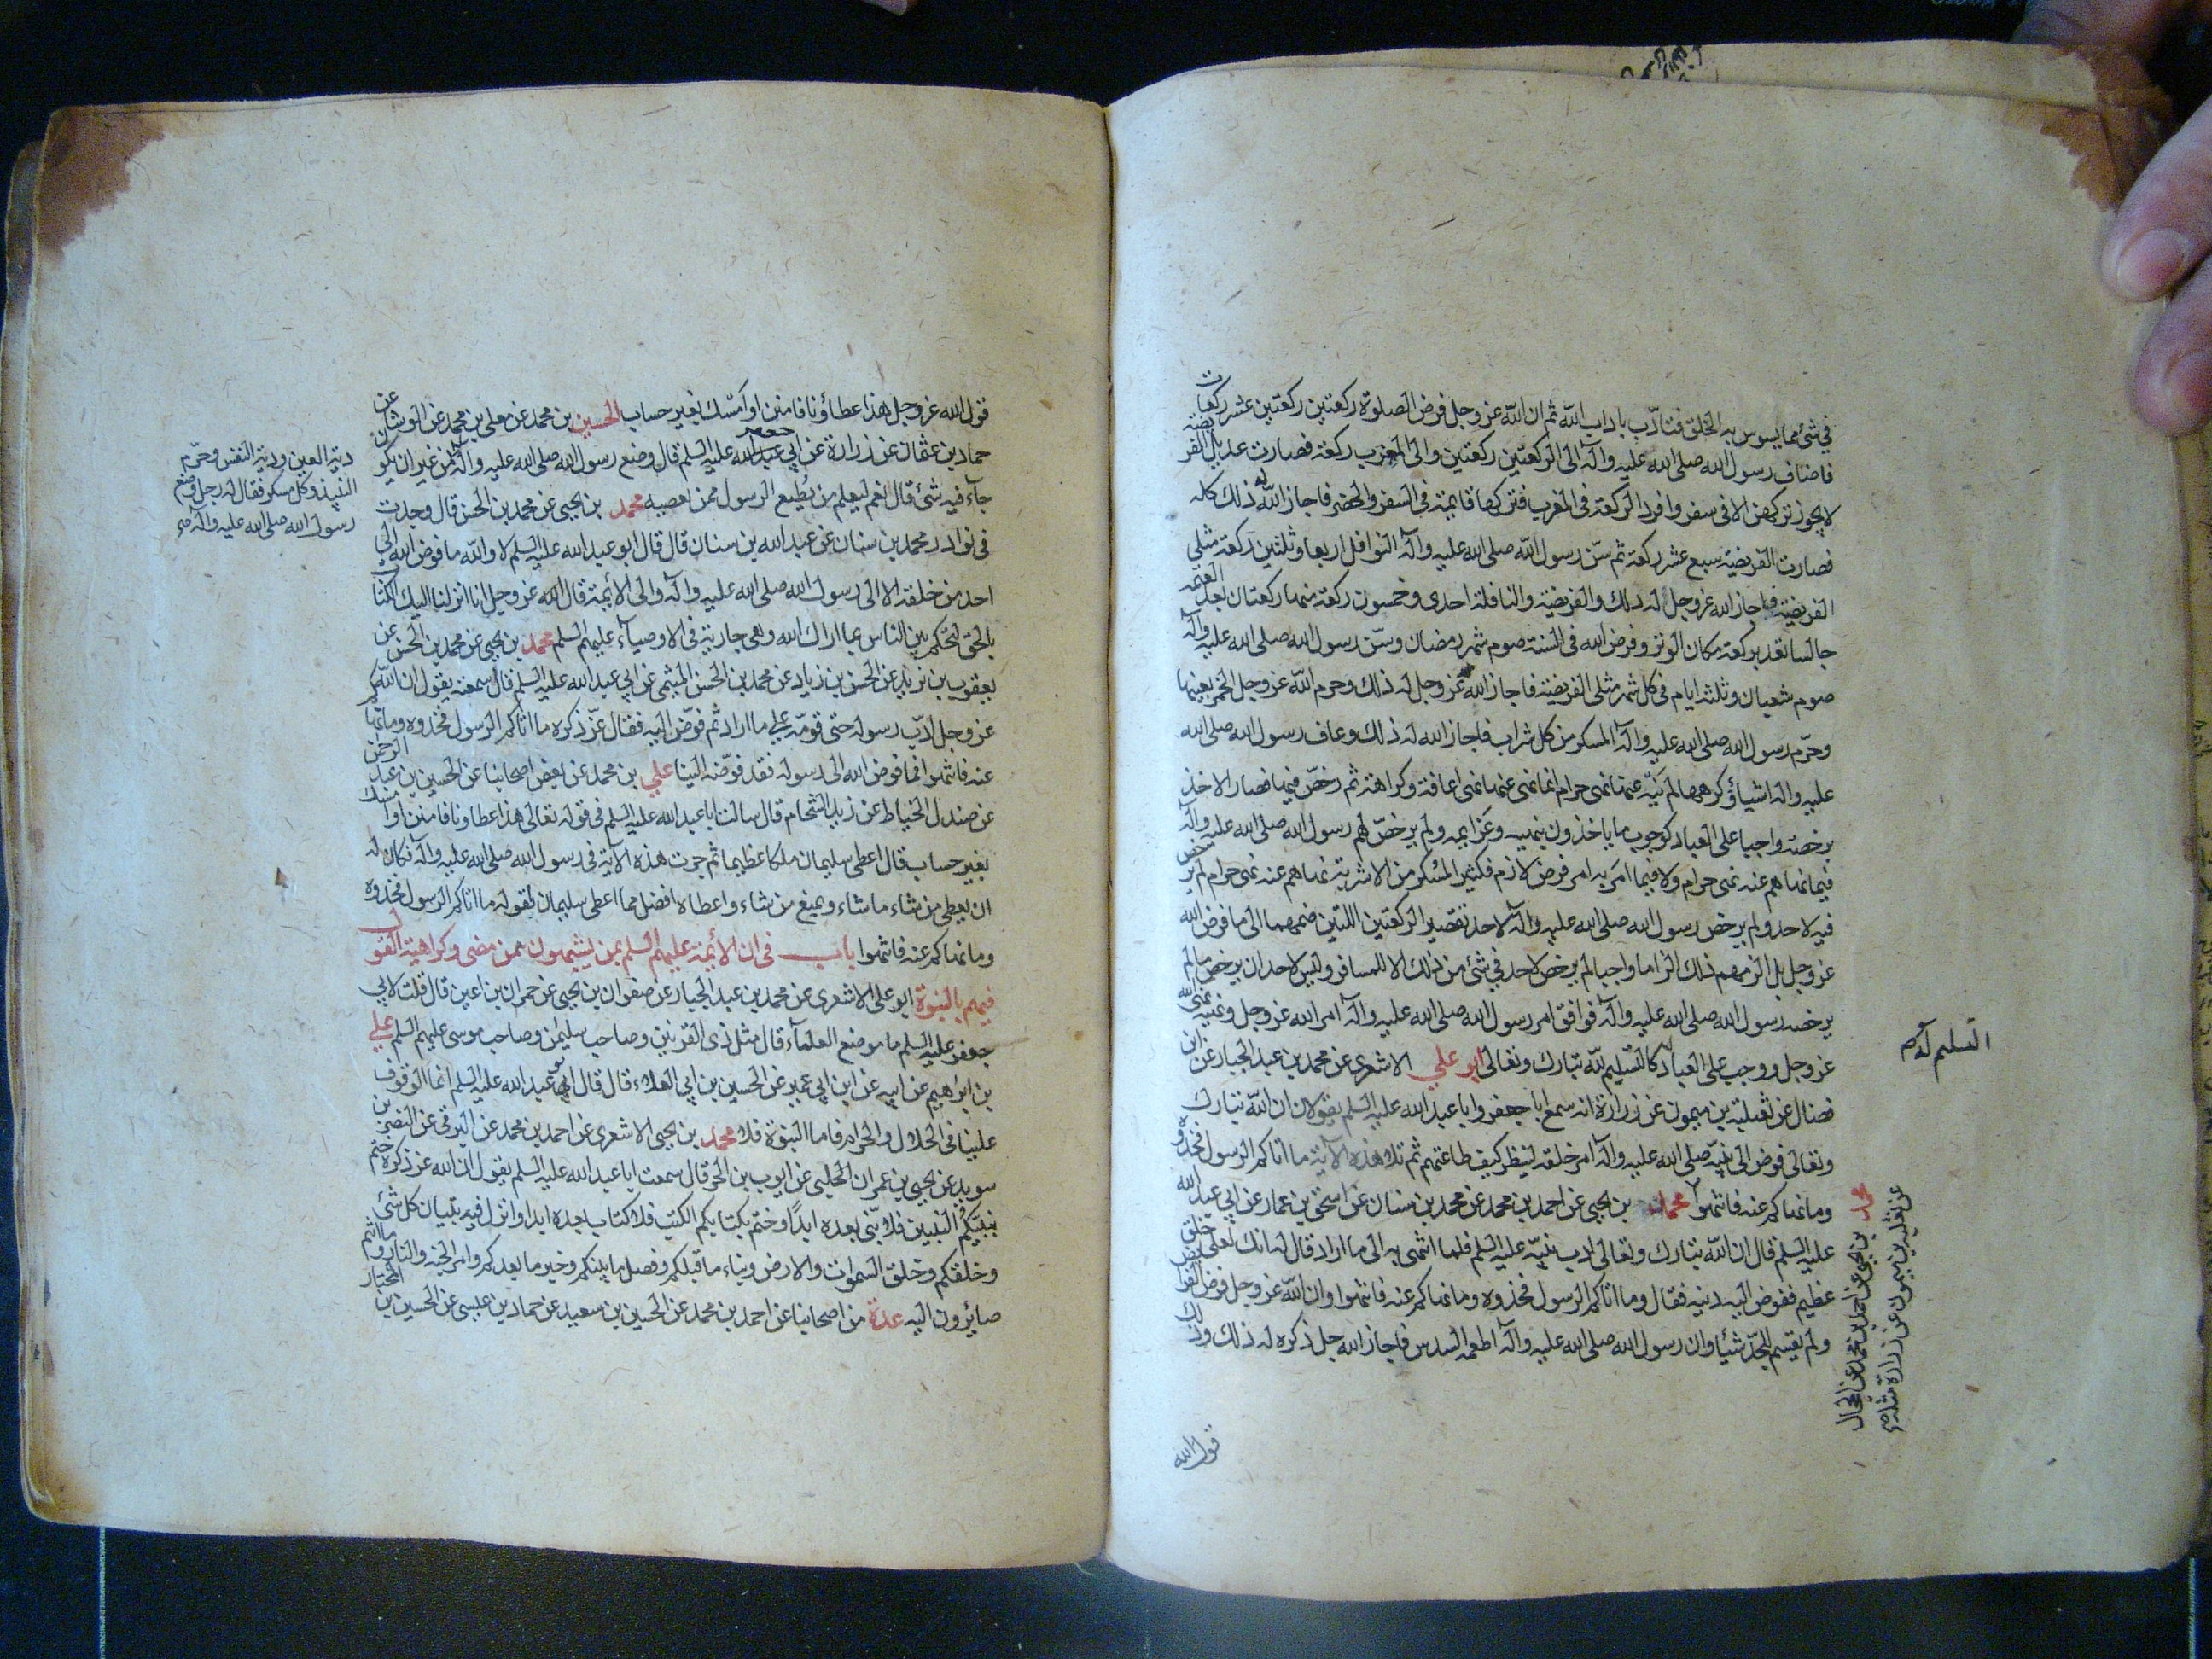 في شئ مما يسوس به الخلق فتأدّب باداب الله ثم ان الله عز وجل فرض الصلوة ركعتين ركعتين عشر ركعات
فاضاف رسول الله صلى الله عليه وآله الى الركعتين ركعتين والى المغرب ركعة فصارت عديل الفريضة
لا يجوز تركهن الا في سفر وافرد الركعة في المغرب فتركها قايمة في السفر والحضر فاجاز الله له ذلك كله
فصارت الفريضة سبع عشر ركعة ثم سّن رسول الله صلى الله عليه وآله النوافل اربعا وثلثين ركعة مثلي
الفريضة فاجاز الله عز وجل له ذلك والفريضة والنافلة احدى وخمسون ركعة منها ركعتان بعد العتمة
جالسا تعد بركعة مكان الوتر وفرض الله في السنة صوم شهر رمضان وسّن رسول الله صلى الله عليه وآله
صوم شعبان وثلثه ايام في كل شهر مثلي الفريضة فاجاز الله عز وجل له ذلك وحرم الله عز وجل الخمر بعينها
وحرّم رسول الله صلى الله عليه وآله المسكر من كل شراب فاجاز الله له ذلك وعاف رسول الله صلى الله
عليه واله اشياؤ كرهها لم ينه عنها نهى حرام انما نهى عنها نهى اعافة وكراهة ثم رخصّ فيها فصار الاخذ
برخصته واجبا على العباد كوجوب ما ياخذون بنهيه وعزايمه ولم يرخصّ لهم رسول الله صلى الله عليه وآله
فيما نهاهم عنه نهى حرام ولا فيما امر به امر فرض لازم فكثير المسكر من الاشربة نهاهم عنه نهى حرام لم يرخص
فيه لاحد ولم يرخص رسول الله صلى الله عليه وآله لاحد تقصير الركعتين اللتين ضمهما الى ما فرض الله
عز وجل بل الزمهم ذلك الزاما واجبا لم يرخص لاحد في شئ من ذلك الا للمسافر وليس لاحد ان يرخص ما لم
يرخصه رسول الله صلى الله عليه وآله فوافق امر رسول الله صلى الله عليه وآله امر الله عز وجل ونهيه نهى الله
عز وجل ووجب على العباد كالتسليم لله تبارك وتعالى ابو علي الاشعرى عن محمد بن عبد الجبار عن ابن
فضال عن ثعلبة بن ميمون عن زرارة انه سمع ابا جعفر وابا عبد الله عليه السلم يقولان ان الله تبارك
وتعالى فوض الى نبيه صلى الله عليه وآله امر خلقه لينظر كيف طاعتهم ثم تلا هذه الآية ما اتاكم الرسول فخذوه
وما نهاكم عنه فانتهوا محمد بن يحيى عن احمد بن محمد عن محمد بن سنان عن اسحق بن عمار عن ابي عبد الله
عليه السلم قال ان الله تبارك وتعالى ادب نبيّه عليه السلم فلما انتهى به الى ما اراد قال له انك لعلى خلق
عظيم ففوض اليه دينه فقال وما اتاكم الرسول فخذوه وما نهاكم عنه فانتهوا وان الله عز وجل فرض الفرائض
ولم يقسم للجّد شيئا وان رسول الله صلى الله عليه وآله اطعمه السدس فاجاز الله جل ذكره له ذلك وذلك
التسليم له
محمد بن يحيى عن احمد بن محمد عن الحجال
عن ثعلبة بن ميمون عن زرارة مثله
قول الله
قول الله عز وجل هذا عطاؤنا فامنن او امسك بغير حساب الحسين بن محمد عن معلى بن محمد عن الوشا عن
حماد بن عثمان عن زرارة عن ابي عبد الله جعفر عليه السلم قال وضع رسول الله صلى الله عليه وآله من غير ان يكون
جآء فيه شئ قال نعم ليعلم من يُطيع الرسول ممن يعصيه محمد بن يحيى عن محمد بن الحسن قال وجدت
في نوادر محمد بن سنان عن عبد الله بن سنان قال قال ابو عبد الله عليه السلم لا والله ما فوض الله الى
احد من خلقه الا الى رسول الله صلى الله عليه وآله والى الأئمة قال الله عز وجل انا انزلنا اليك الكتاب
بالحق لتحكم بين الناس بما اراك الله وهي جارية في الاوصيآء عليهم السلم محمد بن يحيى عن محمد بن الحسن عن
يعقوب بن يزيد عن الحسن بن زياد عن محمد بن الحسن الميثمى عن ابي عبد الله عليه السلم قال سمعته يقول ان الله
عز وجل ادّب رسوله حتى قومّه على ما اراد ثم فوّض اليه فقال عزّ ذكره ما اتاكم الرسول فخذوه وما نهاكم
عنه فانتهوا فما فوض الله الى رسوله فقد فوّضه الينا علي بن محمد عن بعض اصحابنا عن الحسين بن عبد الرحمن
عن صندل الخياط عن زيد الشحام قال سالت ابا عبد الله عليه السلم في قوله تعالى هذا عطاونا فامنن او امسك
بغير حساب قال اعطى سليمان ملكا عظيما ثم جرت هذه الآية في رسول الله صلى الله عليه وآله فكان له
ان يعطي من شاء ما شاء ويمنع من شاء واعطاه افضل مما اعطى سليمان لقوله ما اتاكم الرسول فخذوه
وما نهاكم عنه فانتهوا باب في ان الأئمة عليهم السلم بمن يشبهون ممن مضى وكراهية القول
فيهم بالنبوة ابو على الاشعرى عن محمد بن عبد الجبار عن صفوان بن يحيى عن حمران بن اعين قال قلت لابي
جعفر عليه السلم ما موضع العلمآء قال مثل ذى القرنين وصاحب سليمن وصاحب موسى عليهم السلم علي
بن ابراهيم عن ابيه عن ابن ابي عمير عن الحسين بن ابي العلاء قال قال ابو عبد الله عليه السلم انما الوقوف
علينا في الحلال والحرام فاما النبوة فلا محمد بن يحيى الاشعرى عن احمد بن محمد عن البرقى عن النضر بن
سويد عن يحيى بن عمران الحلبي عن ايوب بن الحر قال سمعت ابا عبد الله عليه السلم يقول ان الله عز ذكره ختم
بنبيّكم النبيين فلا نبّي بعده ابدًا وختم بكتابكم الكتب فلا كتاب بعده ابدا وانزل فيه تبيان كل شئ
وخلقكم وخلق السموات والارض ونباء ما قبلكم وفصل ما بينكم وخبر ما بعدكم وامر الجنة والنار وما انتم
صائرون اليه عدة من اصحابنا عن احمد بن محمد عن الحسين بن سعيد عن حماد بن عيسى عن الحسين بن المختار
دية العين ودية النفس وحرّم
النبيذ وكل مسكر فقال له رجل وضع
رسول الله صلى الله عليه وآله